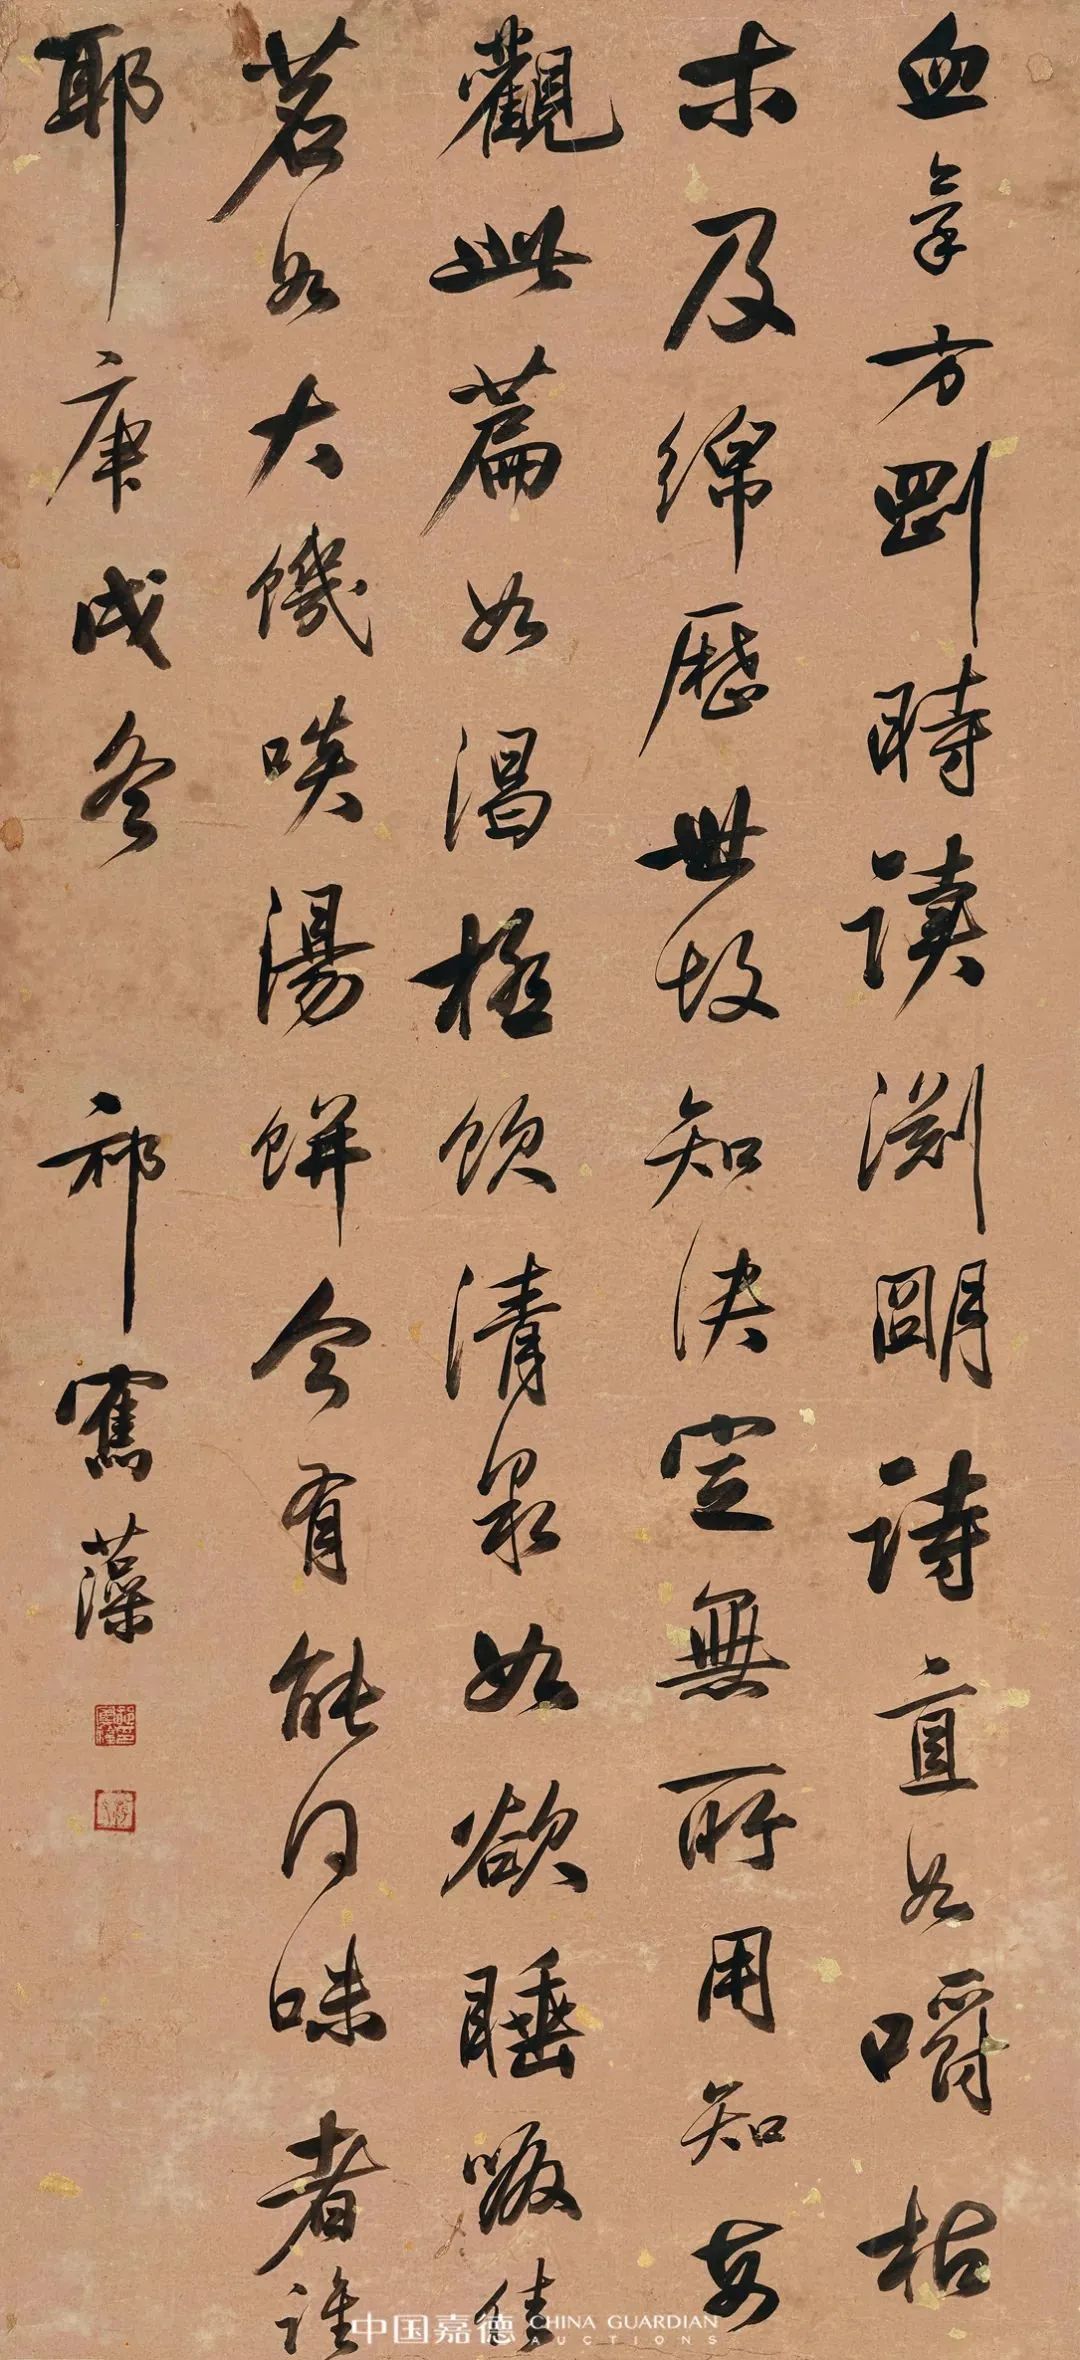 血氣方剛時讀淵明詩直如嚼枯
木及綿歷世故知決定無所用知每
觀此篇如渴極飲清泉如欲睡啜佳
茗如大饑啖湯餅今有能同味者誰
耶庚戌冬
祁寯藻
中国嘉德 CHINA GUARDIAN AUCTIONS